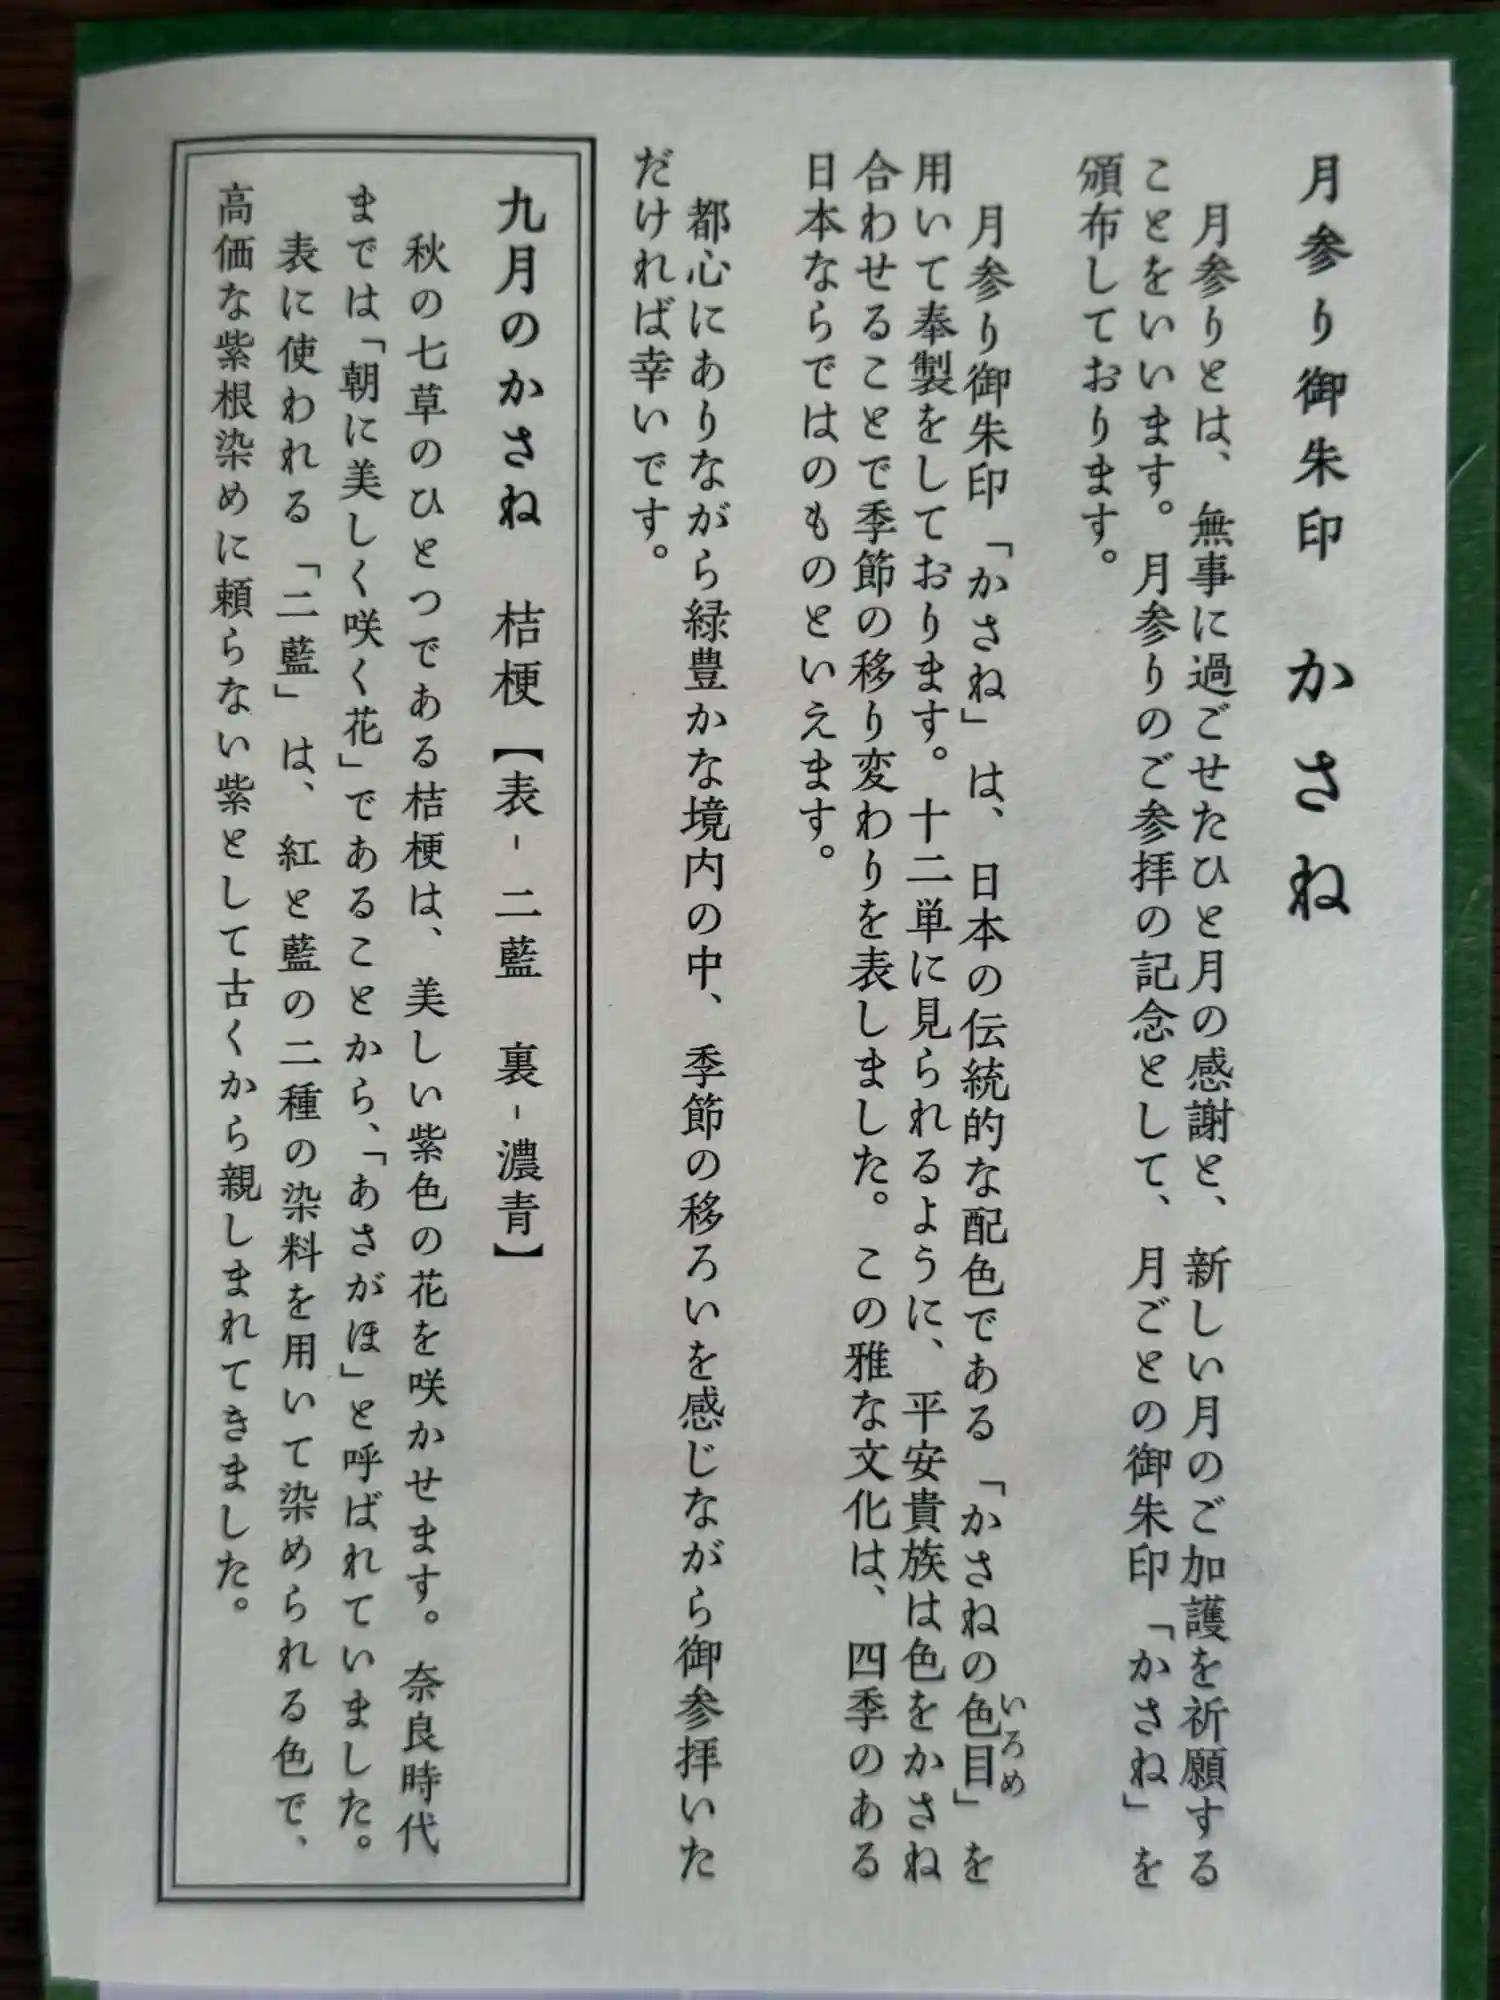 月参り御朱印　かさね
月参りとは、無事に過ごせたひと月の感謝と、新しい月のご加護を祈願する
ことをいいます。月参りのご参拝の記念として、月ごとの御朱印「かさね」を
頒布しております。
月参り御朱印「かさね」は、日本の伝統的な配色である「かさねの色目」を
いろめ
用いて奉製をしております。十二単に見られるように、平安貴族は色をかさね
合わせることで季節の移り変わりを表しました。この雅な文化は、四季のある
日本ならではのものといえます。
都心にありながら緑豊かな境内の中、季節の移ろいを感じながら御参拝いた
だければ幸いです。
九月のかさね　桔梗【表-二藍　裏-濃青】
秋の七草のひとつである桔梗は、美しい紫色の花を咲かせます。奈良時代
までは「朝に美しく咲く花」であることから、「あさがほ」と呼ばれていました。
表に使われる「二藍」は、紅と藍の二種の染料を用いて染められる色で、
高価な紫根染めに頼らない紫として古くから親しまれてきました。